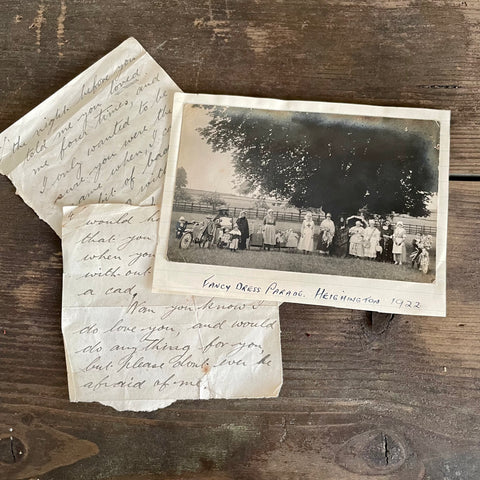 the night before you
told me you loved
me four times, and
I only wanted to be
sure you were
when I
bit of
with
would
that you
when you
without
a cad.
you know I
do love you, and would
do anything for you
but please don't ever be
afraid of me.
FANCY DRESS PARADE. HEIGHINGTON 1922